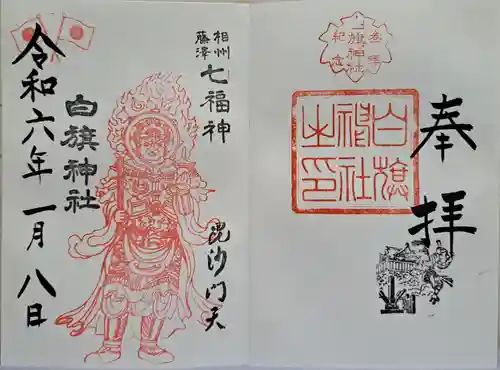 奉拝
参拝
白旗神社
記念
白旗
神社
之印
相州
藤澤
七福神
毘沙門天
白旗神社
令和六年一月八日